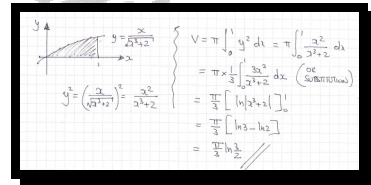 y
y = x/√(x³+2)
1
x
y² = (x/√(x³+2))² = x²/(x³+2)
V = π ∫₀¹ y² dx = π ∫₀¹ x²/(x³+2) dx
= π × 1/3 ∫₀¹ 3x²/(x³+2) dx (OR SUBSTITUTION)
= π/3 [ ln|x³+2| ]₀¹
= π/3 [ ln3 - ln2 ]
= π/3 ln 3/2